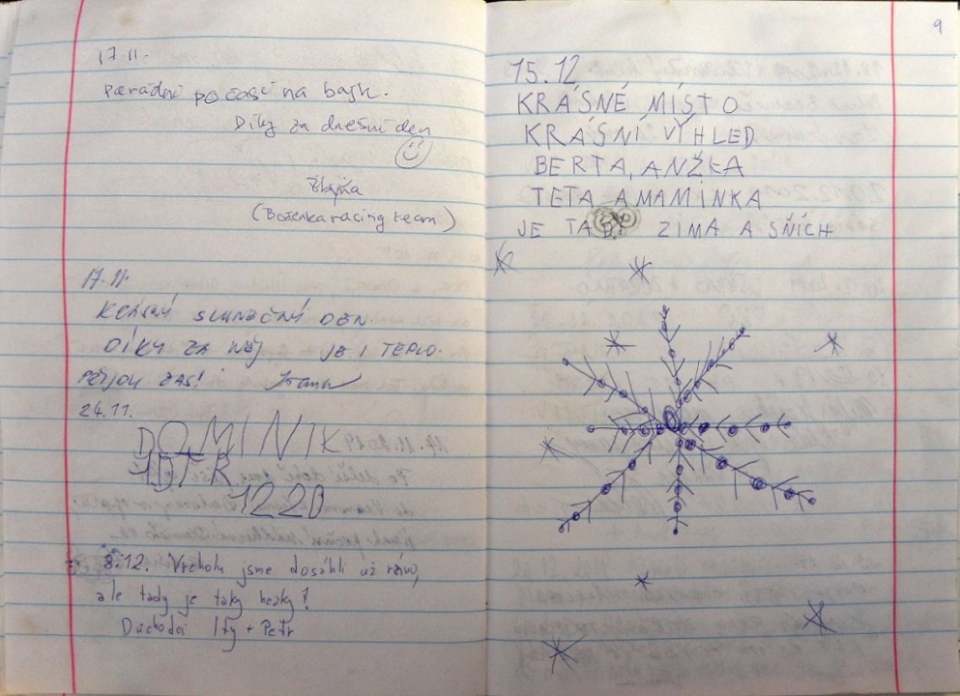 17.11.
Parádní počasí na bajk.
Díky za dnešní den
(Boženka racing team)
17.11.
KRÁSNÝ SLUNEČNÝ DEN.
DÍKY ZA NĚJ JE I TEPLO.
PŘIJDU ZAS!
24.11.
DOMINIK
1220
8.12. Vrcholu jsme dosáhli už ráno,
ale tady je taky hezky!
Důchodci Ity + Petr
9
15.12
KRÁSNÉ MÍSTO
KRÁSNÍ VÝHLED
BERTA, ANŽKA
TETA A MAMINKA
JE TADY ZIMA A SŇÍCH